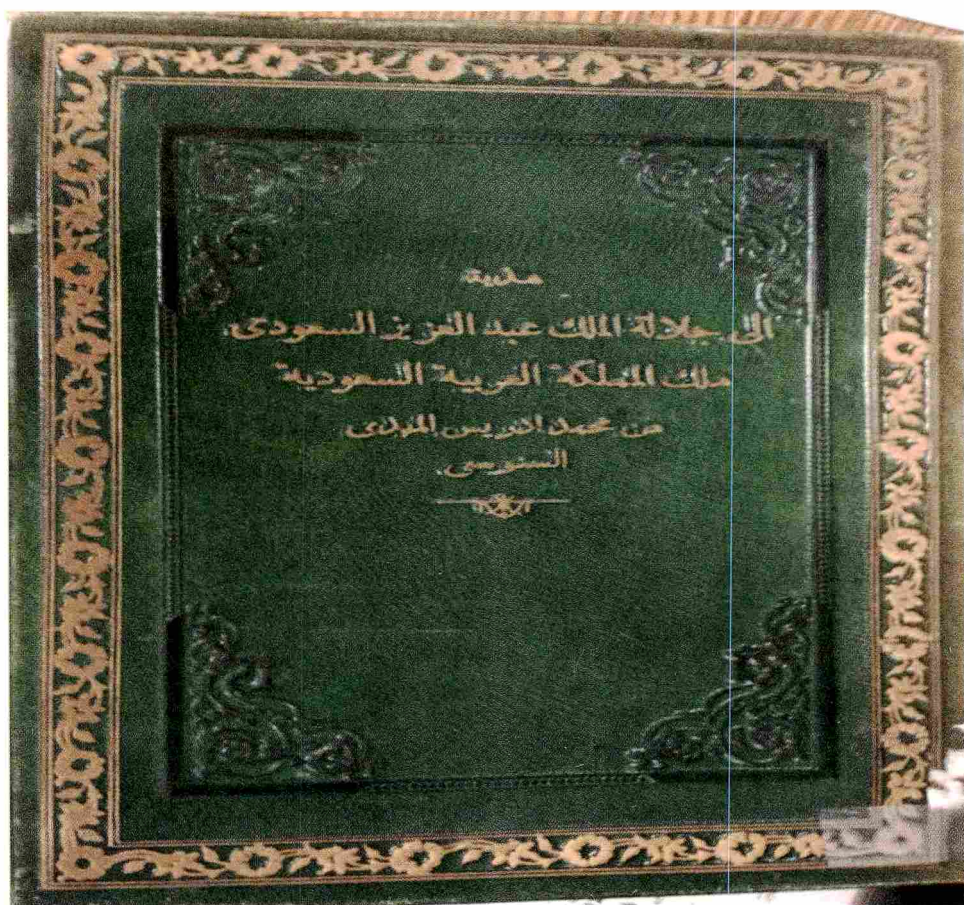 هدية
الى جلالة الملك عبد العزيز السعودى
ملك المملكة العربية السعودية
من محمد ادريس المهدى
السنوسى